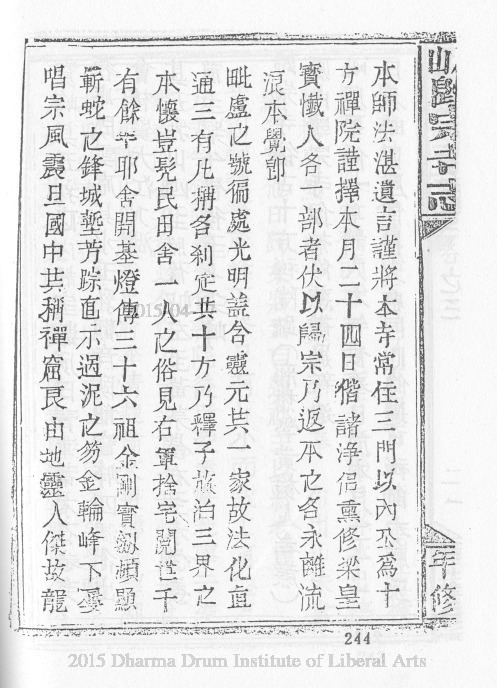 山歸宗寺志
年修
本師法湛遺言謹將本寺常住三門以內永為十
方禪院謹擇本月二十四日偕諸淨侶熏修梁皇
寶懺人各一部者伏以歸宗乃返本之名永離流
浪本覺即
毗盧之號徧處光明蓋含靈元共一家故法化直
通三有凡稱各剎定共十方乃釋子旅泊三界之
本懷豈髡民田舍一人之俗見右軍捨宅閱世千
有餘年耶舍開基燈傳三十六祖金剛寶劔頻顯
斬蛇之鋒城塹芳踪直示過泥之笏金輪峰下屢
唱宗風震旦國中共稱禪窟良由地靈人傑故龍
2015/04
244
2015 Dharma Drum Institute of Liberal Arts